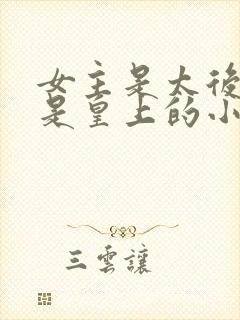 女主是太後
是皇上的小
三雲讓